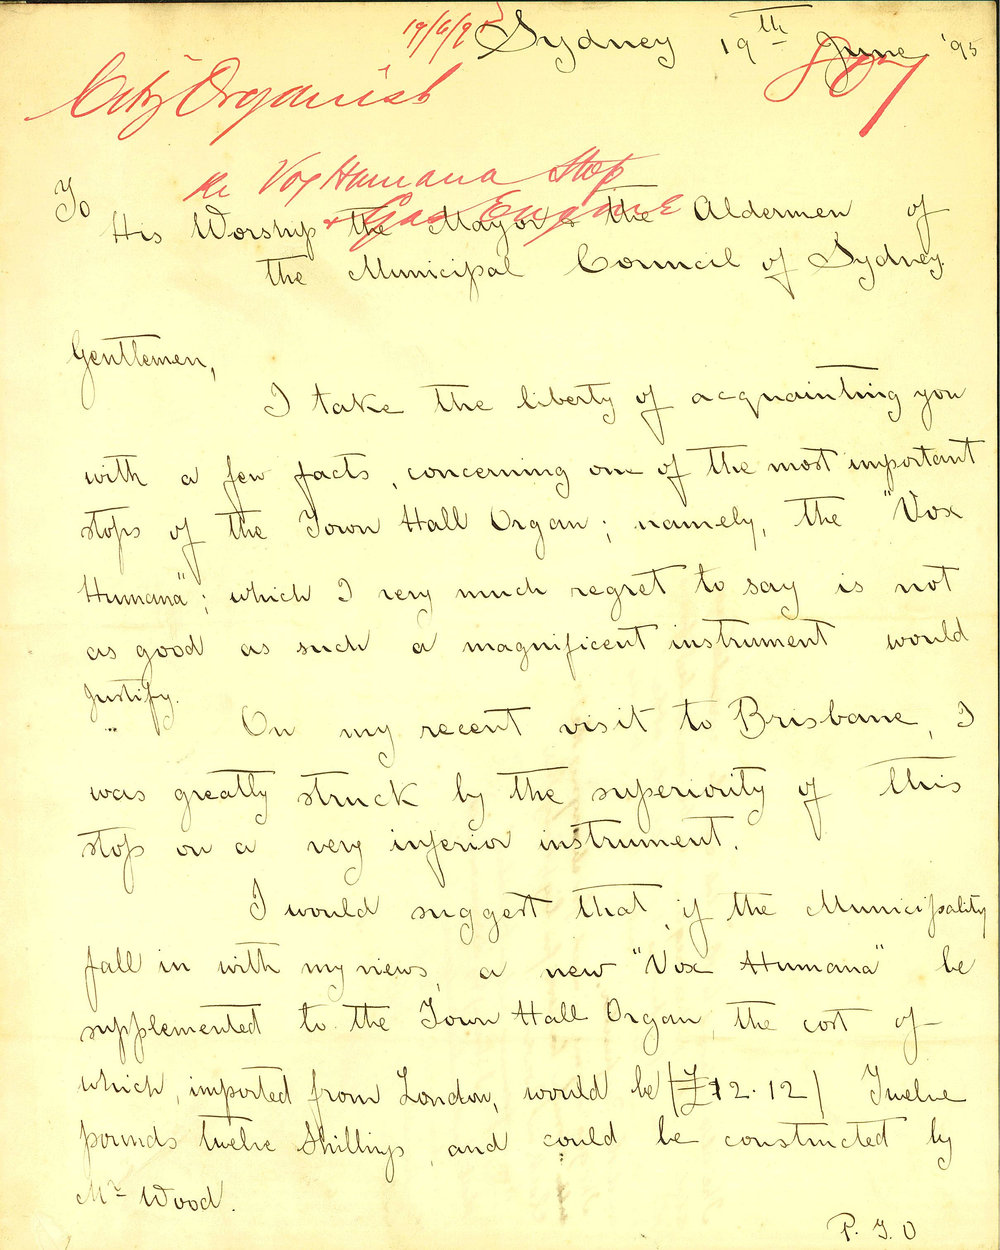 19/6/95
Sydney 19th June '95
City Organist
807
re Vox Humana Stop
+ Gas Engine
To
His Worship the Mayor & the Aldermen of
the Municipal Council of Sydney.
Gentlemen,
I take the liberty of acquainting you
with a few facts, concerning one of the most important
stops of the Town Hall Organ; namely, the "Vox
Humana"; which I very much regret to say is not
as good as such a magnificent instrument would
justify.
On my recent visit to Brisbane, I
was greatly struck by the superiority of this
stop on a very inferior instrument.
I would suggest that, if the Municipality
fall in with my views, a new "Vox Humana" be
supplemented to the Town Hall Organ, the cost of
which, imported from London, would be |£12.12| Twelve
pounds twelve Shillings, and could be constructed by
Mr Wood.
P.T.O